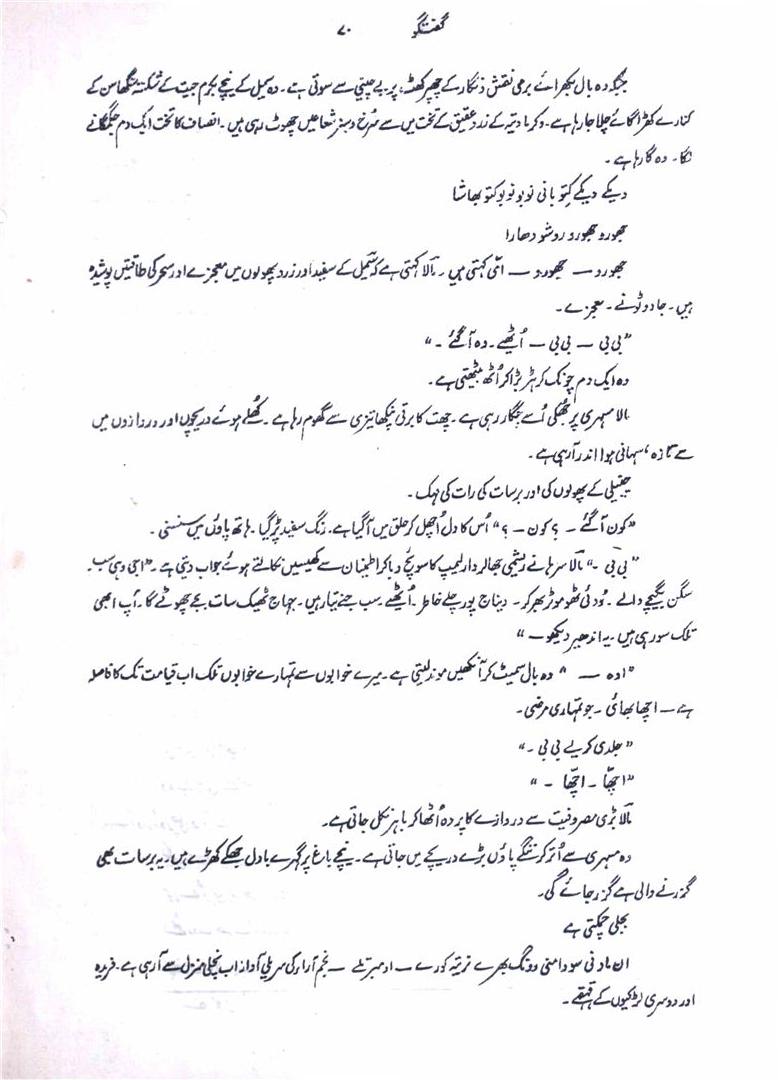 گفتگو ۷۰
جبکہ وہ بال بکھرائے برمی نقش و نگار کے چھپر کھٹ پر بے چینی سے سوتی ہے۔ وہ سمبل کے نیچے بکرم جیت کے شکستہ سنگھاسن کے
کنارے کھڑا گائے چلا جا رہا ہے۔ وکرمادتیہ کے زرد عقیق کے تخت میں سے سُرخ و سبز شعاعیں چھوٹ رہی ہیں۔ انصاف کا تخت ایک دم جگمگانے
لگا۔ وہ گا رہا ہے۔
دیکھے دیکھے کِتو بانی نوبو نوبو کتو بھاشا
جھورو جھورو روشو دھارا
جھورو — جھورو — امّی کہتی ہیں۔ مالا کہتی ہے کہ سمبل کے سفید اور زرد پھولوں میں معجزے اور سحر کی طاقتیں پوشیدہ
ہیں۔ جادو ٹونے۔ معجزے۔
”بی بی — بی بی — اُٹھیے۔ وہ آ گئے۔“
وہ ایک دم چونک کر ہڑبڑا کر اُٹھ بیٹھتی ہے۔
مالا مسہری پر جھکی اُسے جگا رہی ہے۔ چھت کا برقی پنکھا تیزی سے گھوم رہا ہے۔ کُھلے ہوئے دریچوں اور دروازوں میں
سے تازہ، سہانی ہوا اندر آ رہی ہے۔
چنبیلی کے پھولوں کی اور برسات کی رات کی مہک۔
”کون آ گئے — ؟ کون — ؟“ اُس کا دل اُچھل کر حلق میں آ گیا ہے۔ رنگ سفید پڑ گیا۔ ہاتھ پاؤں میں سنسنی۔
”بی بی۔“ مالا سرہانے ریشمی جھالردار لیمپ کا سوئچ دبا کر اطمینان سے کھیسیں نکالتے ہوئے جواب دیتی ہے۔ ”اجی وہی سب۔
سگن بگیچے والے۔ وُدئی ٹھو موٹر بھر کر۔ دیناج پور چلے خاطر۔ اُٹھیے سب جنے تیار ہیں۔ جہاج ٹھیک سات بجے چھوٹے گا۔ آپ ابھی
تلک سو رہی ہیں۔ یہ اندھیر دیکھو —“
”اوہ —“ وہ بال سمیٹ کر آنکھیں موند لیتی ہے۔ میرے خوابوں سے تمہارے خوابوں تلک اب قیامت تک کا فاصلہ
ہے — اچھا بھائی۔ جو تمہاری مرضی۔
”جلدی کریے بی بی۔“
”اچّھا۔ اچّھا۔“
مالا بڑی مصروفیت سے دروازے کا پردہ اُٹھا کر باہر نکل جاتی ہے۔
وہ مسہری سے اُتر کر ننگے پاؤں بڑے دریچے میں جاتی ہے۔ نیچے باغ پر گہرے بادل جھکے کھڑے ہیں۔ یہ برسات بھی
گزرنے والی ہے گزر جائے گی۔
بجلی چمکتی ہے
ان مادنی سودامنی دونگ بھرے نرتیہ کورے — اومبر تلے — نجم آراء کی سریلی آواز اب نچلی منزل سے آ رہی ہے۔ فریدہ
اور دوسری لڑکیوں کے قہقہے۔